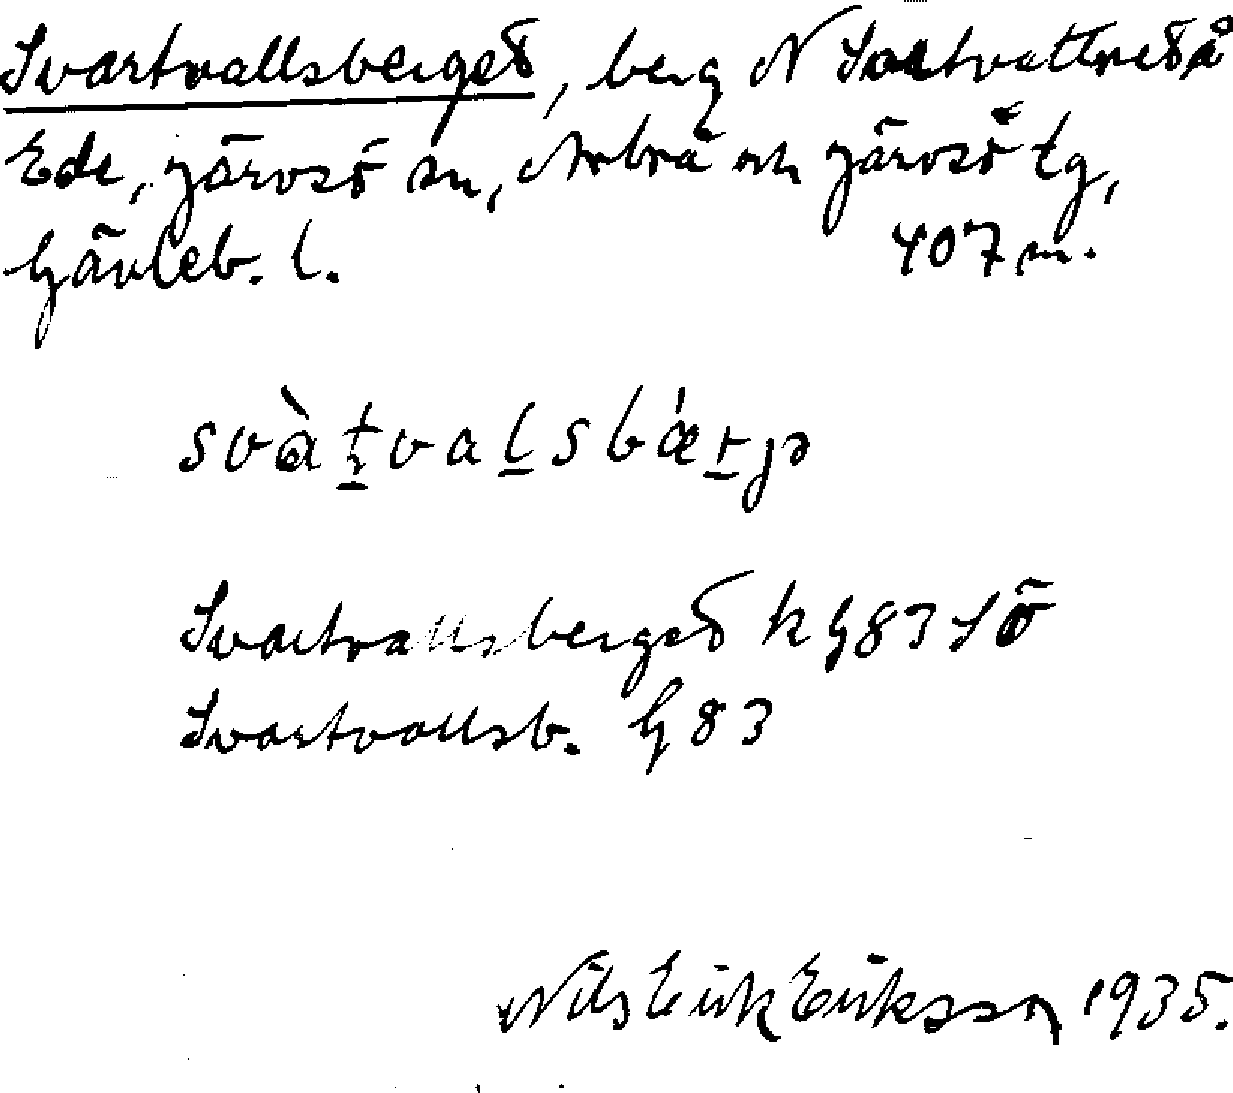 Svartvallsberget, berg N Svartvattnet å
Ede, Järvsö sn, Arbrå och Järvsö tg,
Gävleb. l. 407 m.
svàṭvaḷsbǽṛjə
Svartvallsberget k G 83 SÖ
Svartvallsb. G 83
Nils Erik Eriksson 1935.